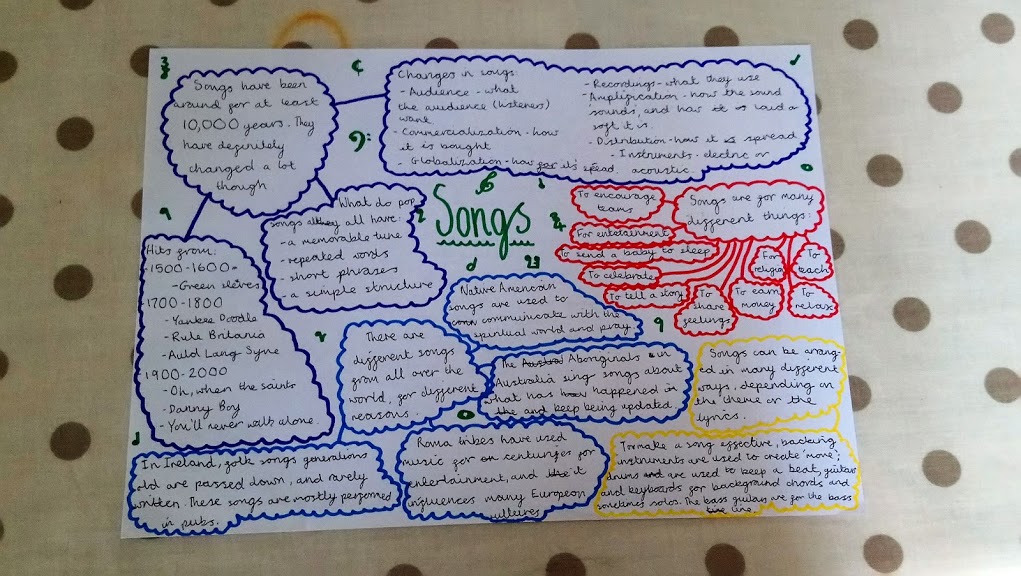 Songs have been
around for at least
10,000 years. They
have definitely
changed a lot
though
Changes in songs:
- Audience - what
the audience (listeners)
want
- Commercialization - how
it is bought
- Globalization - how far it's spread.
- Recordings - what they use
- Amplification - how the sound
sounds, and how loud or
soft it is.
- Distribution - how it is spread
- Instruments - electric or
acoustic.
What do pop
songs all have:
- a memorable tune
- repeated words
- short phrases
- a simple structure
Songs
To encourage
teams
Songs are for many
different things:
For entertainment
To send a baby to sleep
To celebrate
To tell a story
To
share
feelings
To earn
money
For
religion
To
teach
To
relax
Hits from:
1500-1600 -
- Green sleves
1700-1800
- Yankee Doodle
- Rule Britania
- Auld Lang Syne
1900-2000
- Oh, when the saints
- Danny Boy
- You'll never walk alone.
Native American
songs are used to
communicate with the
spiritual world and pray.
There are
different songs
from all over the
world, for different
reasons.
The Aboriginals in
Australia sing songs about
what has happened in
the and keep being updated.
Songs can be arrang-
ed in many different
ways, depending on
the theme or the
lyrics.
In Ireland, folk songs generations
old are passed down, and rarely
written. These songs are mostly performed
in pubs.
Roma tribes have used
music for centuries for
entertainment, and it
influences many European
cultures
To make a song effective, backing
instruments are used to create 'more';
drums are used to keep a beat, guitars
and keyboards for background chords and
sometimes solos. The bass guitars are for the bass
line.